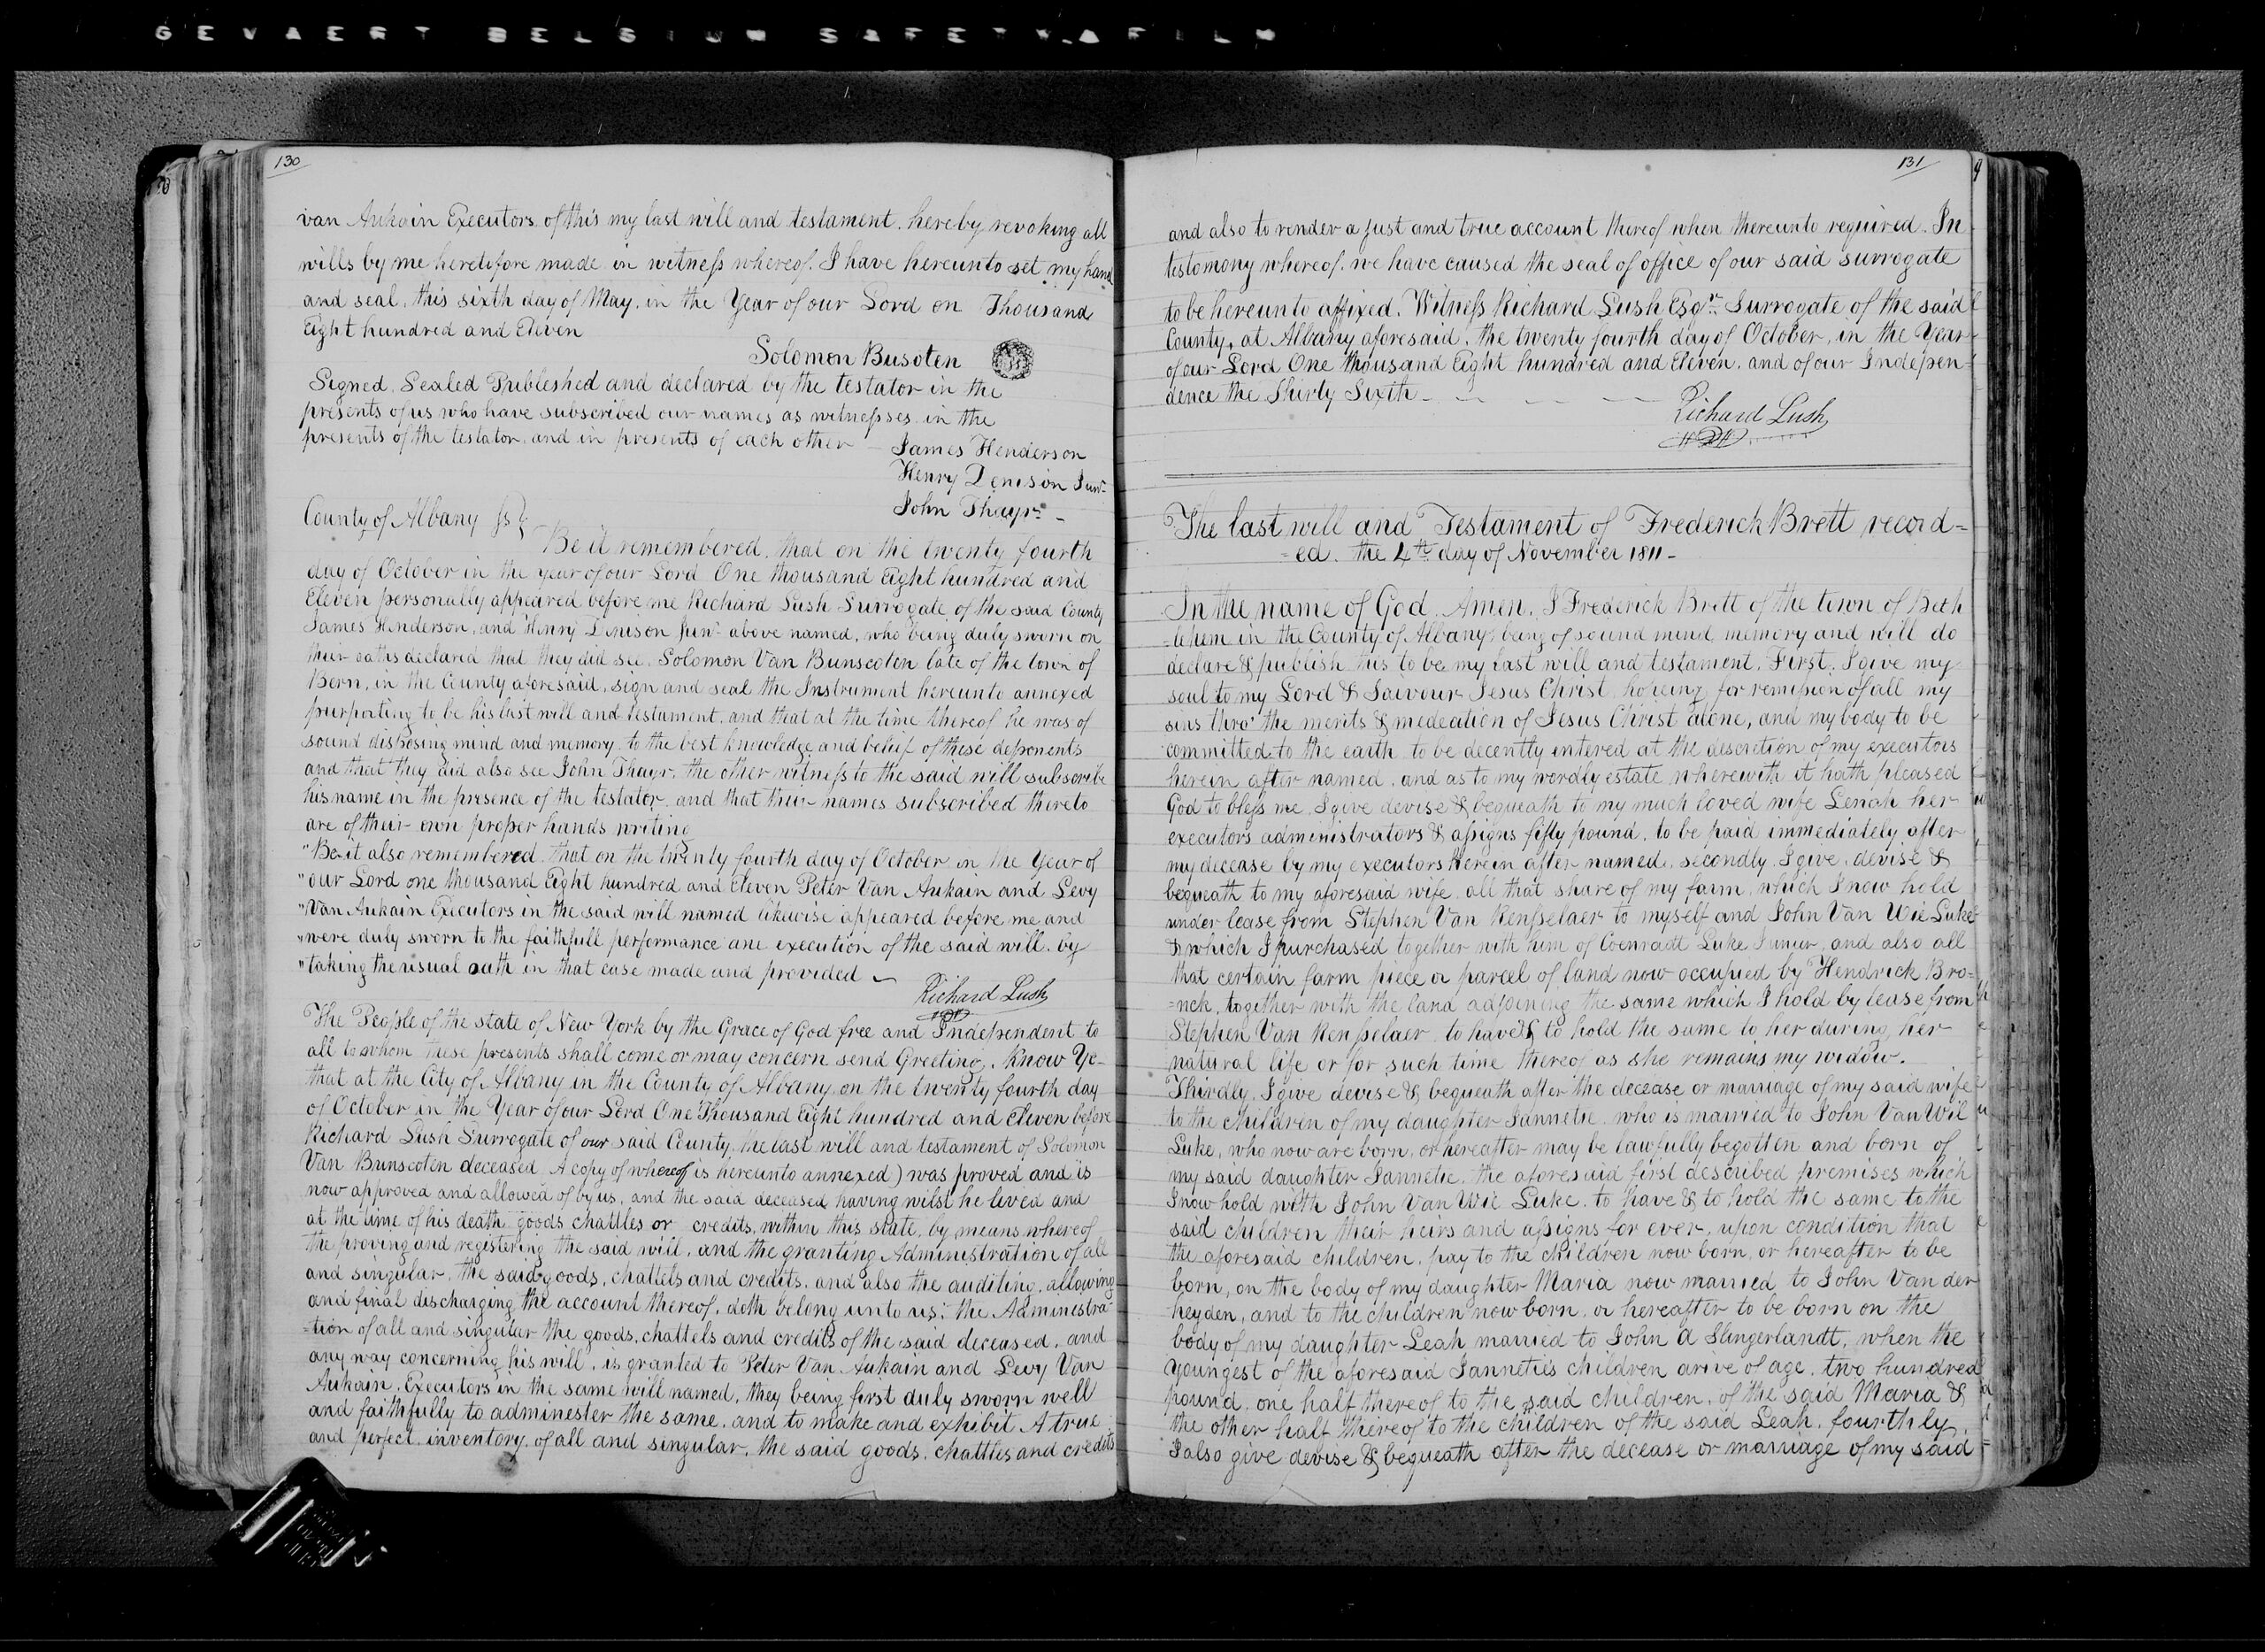 GEVAERT BELGIUM SAFETY FILM
130
van Aukain Executors of this my last will and testament. hereby revoking all
wills by me heretofore made in witness whereof. I have hereunto set my hand
and seal, this sixth day of May, in the Year of our Lord on Thousand
Eight hundred and Eleven
Solomon Busoten
Signed, Sealed Published and declared by the testator in the
presents of us who have subscribed our names as witnesses in the
presents of the testator, and in presents of each other
James Henderson
Henry Denison Junr
John Thayr
County of Albany ss
Be it remembered, that on the twenty fourth
day of October in the year of our Lord One thousand Eight hundred and
Eleven personally appeared before me Richard Lush Surrogate of the said County
James Henderson, and Henry Denison Junr above named, who being duly sworn on
their oaths declared that they did see Solomon Van Bunscoten late of the town of
Bern, in the County aforesaid, sign and seal the Instrument hereunto annexed
purporting to be his last will and testament, and that at the time thereof he was of
sound disposing mind and memory to the best knowledge and belief of these deponents
and that they did also see John Thayr, the other witness to the said will subscribe
his name in the presence of the testator and that their names subscribed thereto
are of their own proper hands writing
"Be it also remembered that on the twenty fourth day of October in the Year of
"our Lord one thousand Eight hundred and Eleven Peter Van Aukain and Levy
"Van Aukain Executors in the said will named likewise appeared before me and
"were duly sworn to the faithfull performance ane execution of the said will. by
"taking the usual oath in that case made and provided
Richard Lush
The People of the state of New York by the Grace of God free and Independent to
all to whom these presents shall come or may concern send Greeting. Know Ye
that at the City of Albany in the County of Albany on the twenty fourth day
of October in the Year of our Lord One Thousand Eight hundred and Eleven before
Richard Lush Surrogate of our said County, the last will and testament of Solomon
Van Bunscoten deceased A copy of whereof is hereunto annexed) was proved and is
now approved and allowed of by us, and the said deceased having wilst he lived and
at the time of his death goods chattles or credits, within this state, by means whereof
the proving and registering the said will, and the granting Administration of all
and singular, the said goods, chattels and credits, and also the auditing, allowing
and final discharging the account thereof, doth belong unto us; the Administra-
=tion of all and singular the goods, chattels and credits of the said deceased, and
any way concerning his will, is granted to Peter Van Aukain and Levy Van
Aukain, Executors in the same will named, they being first duly sworn well
and faithfully to adminester the same, and to make and exhibit A true
and perfect inventory of all and singular, the said goods, chattles and credits
131
and also to render a just and true account thereof when thereunto required. In
testomony whereof, we have caused the seal of office of our said surrogate
to be hereunto affixed. Witness Richard Lush Esqr. Surrogate of the said
County, at Albany aforesaid, the twenty fourth day of October, in the Year
of our Lord One thousand Eight hundred and Eleven, and of our Indepen-
dence the Thirty Sixth
Richard Lush
The last will and Testament of Frederick Brett record=
=ed. the 4th day of November 1811-
In the name of God. Amen, I Frederick Brett of the town of Beth
=lehem in the County of Albany, being of sound mind, memory and will do
declare & publish this to be my last will and testament. First, I give my
soul to my Lord & Saivour Jesus Christ hopeing for remission of all my
sins thro' the merits & medeation of Jesus Christ alone, and my body to be
committed to the earth to be decently intered at the descretion of my executors
herein after named, and as to my wordly estate wherewith it hath pleased
God to bless me, I give devise & bequeath to my much loved wife Lenah her
executors administrators & assigns fifty pound, to be paid immediately after
my decease by my executors herein after named, secondly I give, devise &
bequeath to my aforesaid wife all that share of my farm, which I now hold
under lease from Stephen Van Rensselaer to myself and John Van Wie Luke
& which I purchased together with him of Coenradt Luke Junior, and also all
that certain farm piece or parcel of land now occupied by Hendrick Bro=
=nck, together with the land adjoining the same which I hold by lease from
Stephen Van Renselaer to have & to hold the same to her during her
natural life or for such time thereof as she remains my widow.
Thirdly, I give devise & bequeath after the decease or marriage of my said wife
to the children of my daughter Jannetie, who is married to John Van Wie
Luke, who now are born, or hereafter may be lawfully begotten and born of
my said daughter Jannetie, the aforesaid first described premises which
I now hold with John Van Wie Luke, to have & to hold the same to the
said children their heirs and assigns for ever, upon condition that
the aforesaid children, pay to the children now born, or hereafter to be
born, on the body of my daughter Maria now married to John Van der
heyden, and to the children now born, or hereafter to be born on the
body of my daughter Leah married to John A Slingerlandt, when the
youngest of the aforesaid Janneties children arive of age, two hundred
pound, one half thereof to the said children, of the said Maria &
the other half thereof to the children of the said Leah, fourthly,
I also give devise & bequeath after the decease or marriage of my said